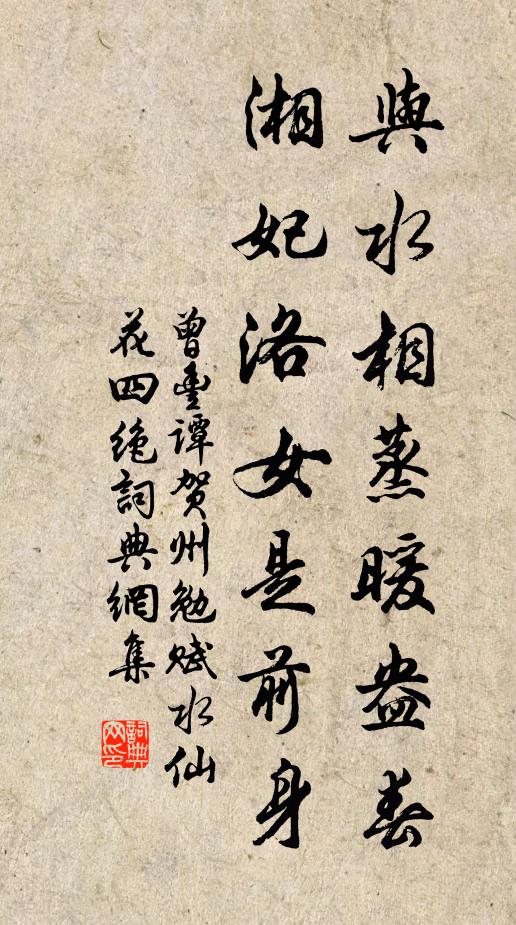 與水相蒸暖盎春
湘妃洛女是前身
曾豊譚賀州勉赋水仙
花四绝詞典網集
詞典網印